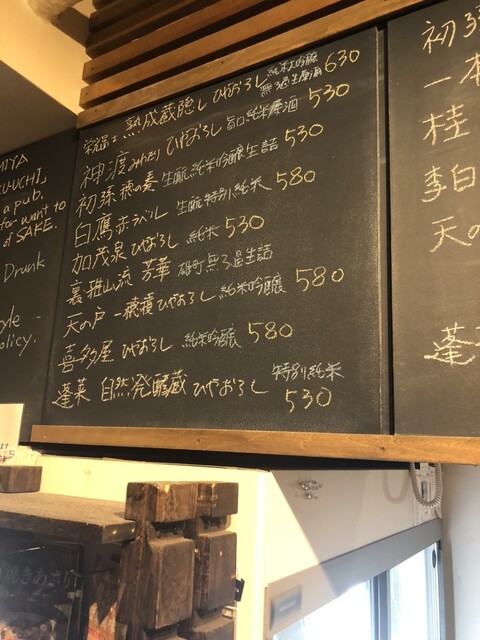 熟成蔵隠し ひやおろし 純米大吟醸 無ろ過生原酒 630
神渡 みわたり ひやおろし 旨口純米原酒 530
初孫 穂の素 生酛純米吟醸生詰 530
白鷹 赤ラベル 生酛特別純米 580
加茂泉 ひやおろし 純米 530
裏雅山流 芳華 雄町無ろ過生詰
天の戸 一穂積 ひやおろし 純米吟醸 580
喜多屋 ひやおろし 純米吟醸 580
蓬莱 自然発酵蔵 ひやおろし 特別純米 530
MITA
KU-UCHI,
a pub.
for want to
d SAKE.
Drunk
yle
olicy.
初孫
一本
桂
李白
天の
蓬
焼きあさり